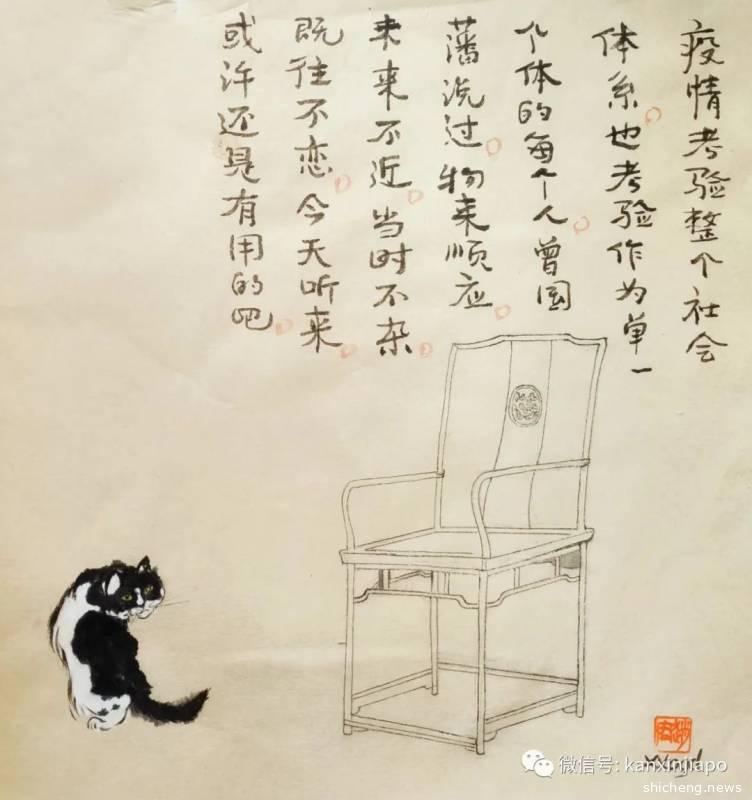 疫情考验整个社会
体系。也考验作为单一
个体的每个人。曾国
藩说过。物来顺应。
未来不近。当时不杂。
既往不恋。今天听来。
或许还是有用的吧。
微信号: kanxinjiapo
shicheng.news